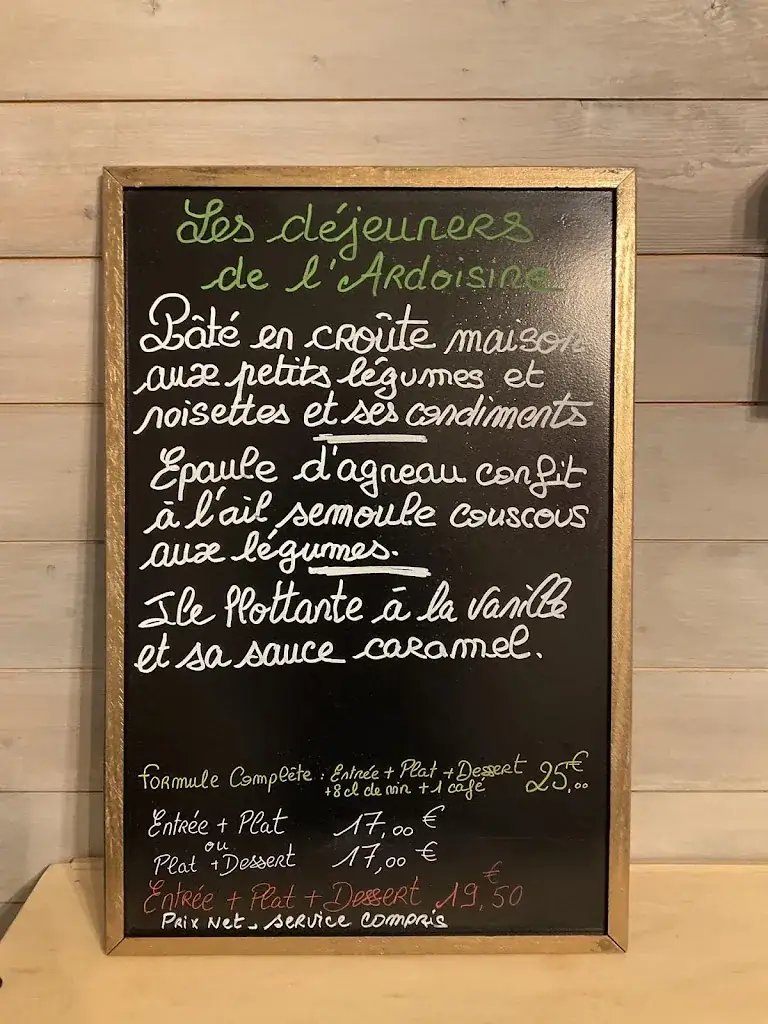 Les déjeuners
de l'Ardoisine
Pâté en croûte maison
aux petits légumes et
noisettes et ses condiments
Epaule d'agneau confit
à l'ail semoule couscous
aux légumes.
Ile flottante à la vanille
et sa sauce caramel.
Formule Complète : Entrée + Plat + Dessert 25,00€
+ 8 cl de vin + 1 café
Entrée + Plat 17,00 €
ou
Plat + Dessert 17,00 €
Entrée + Plat + Dessert 19,50 €
Prix Net. service compris